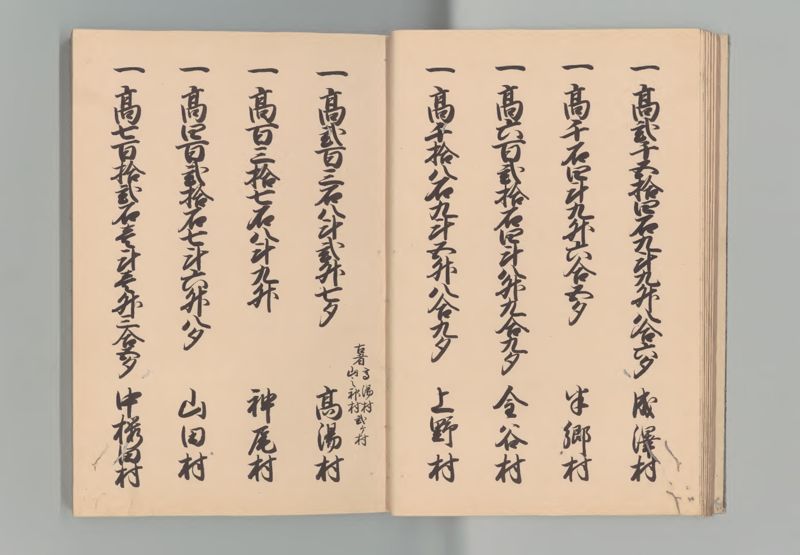 一 高貳千五拾四石九斗九升八合六夕 成澤村
一 高千石四斗九升六合五夕 半郷村
一 高六百貳拾石四斗八升九合九夕 金谷村
一 高千拾八石九斗五升八合九夕 上野村
一 高貳百三石八斗貳升七夕 高湯村
高湯村
山之神村貳ケ村
一 高百三拾七石八斗九升 神尾村
一 高四百貳拾石七斗六升八夕 山田村
一 高七百拾貳石壱斗壱升三合五夕 中櫻田村